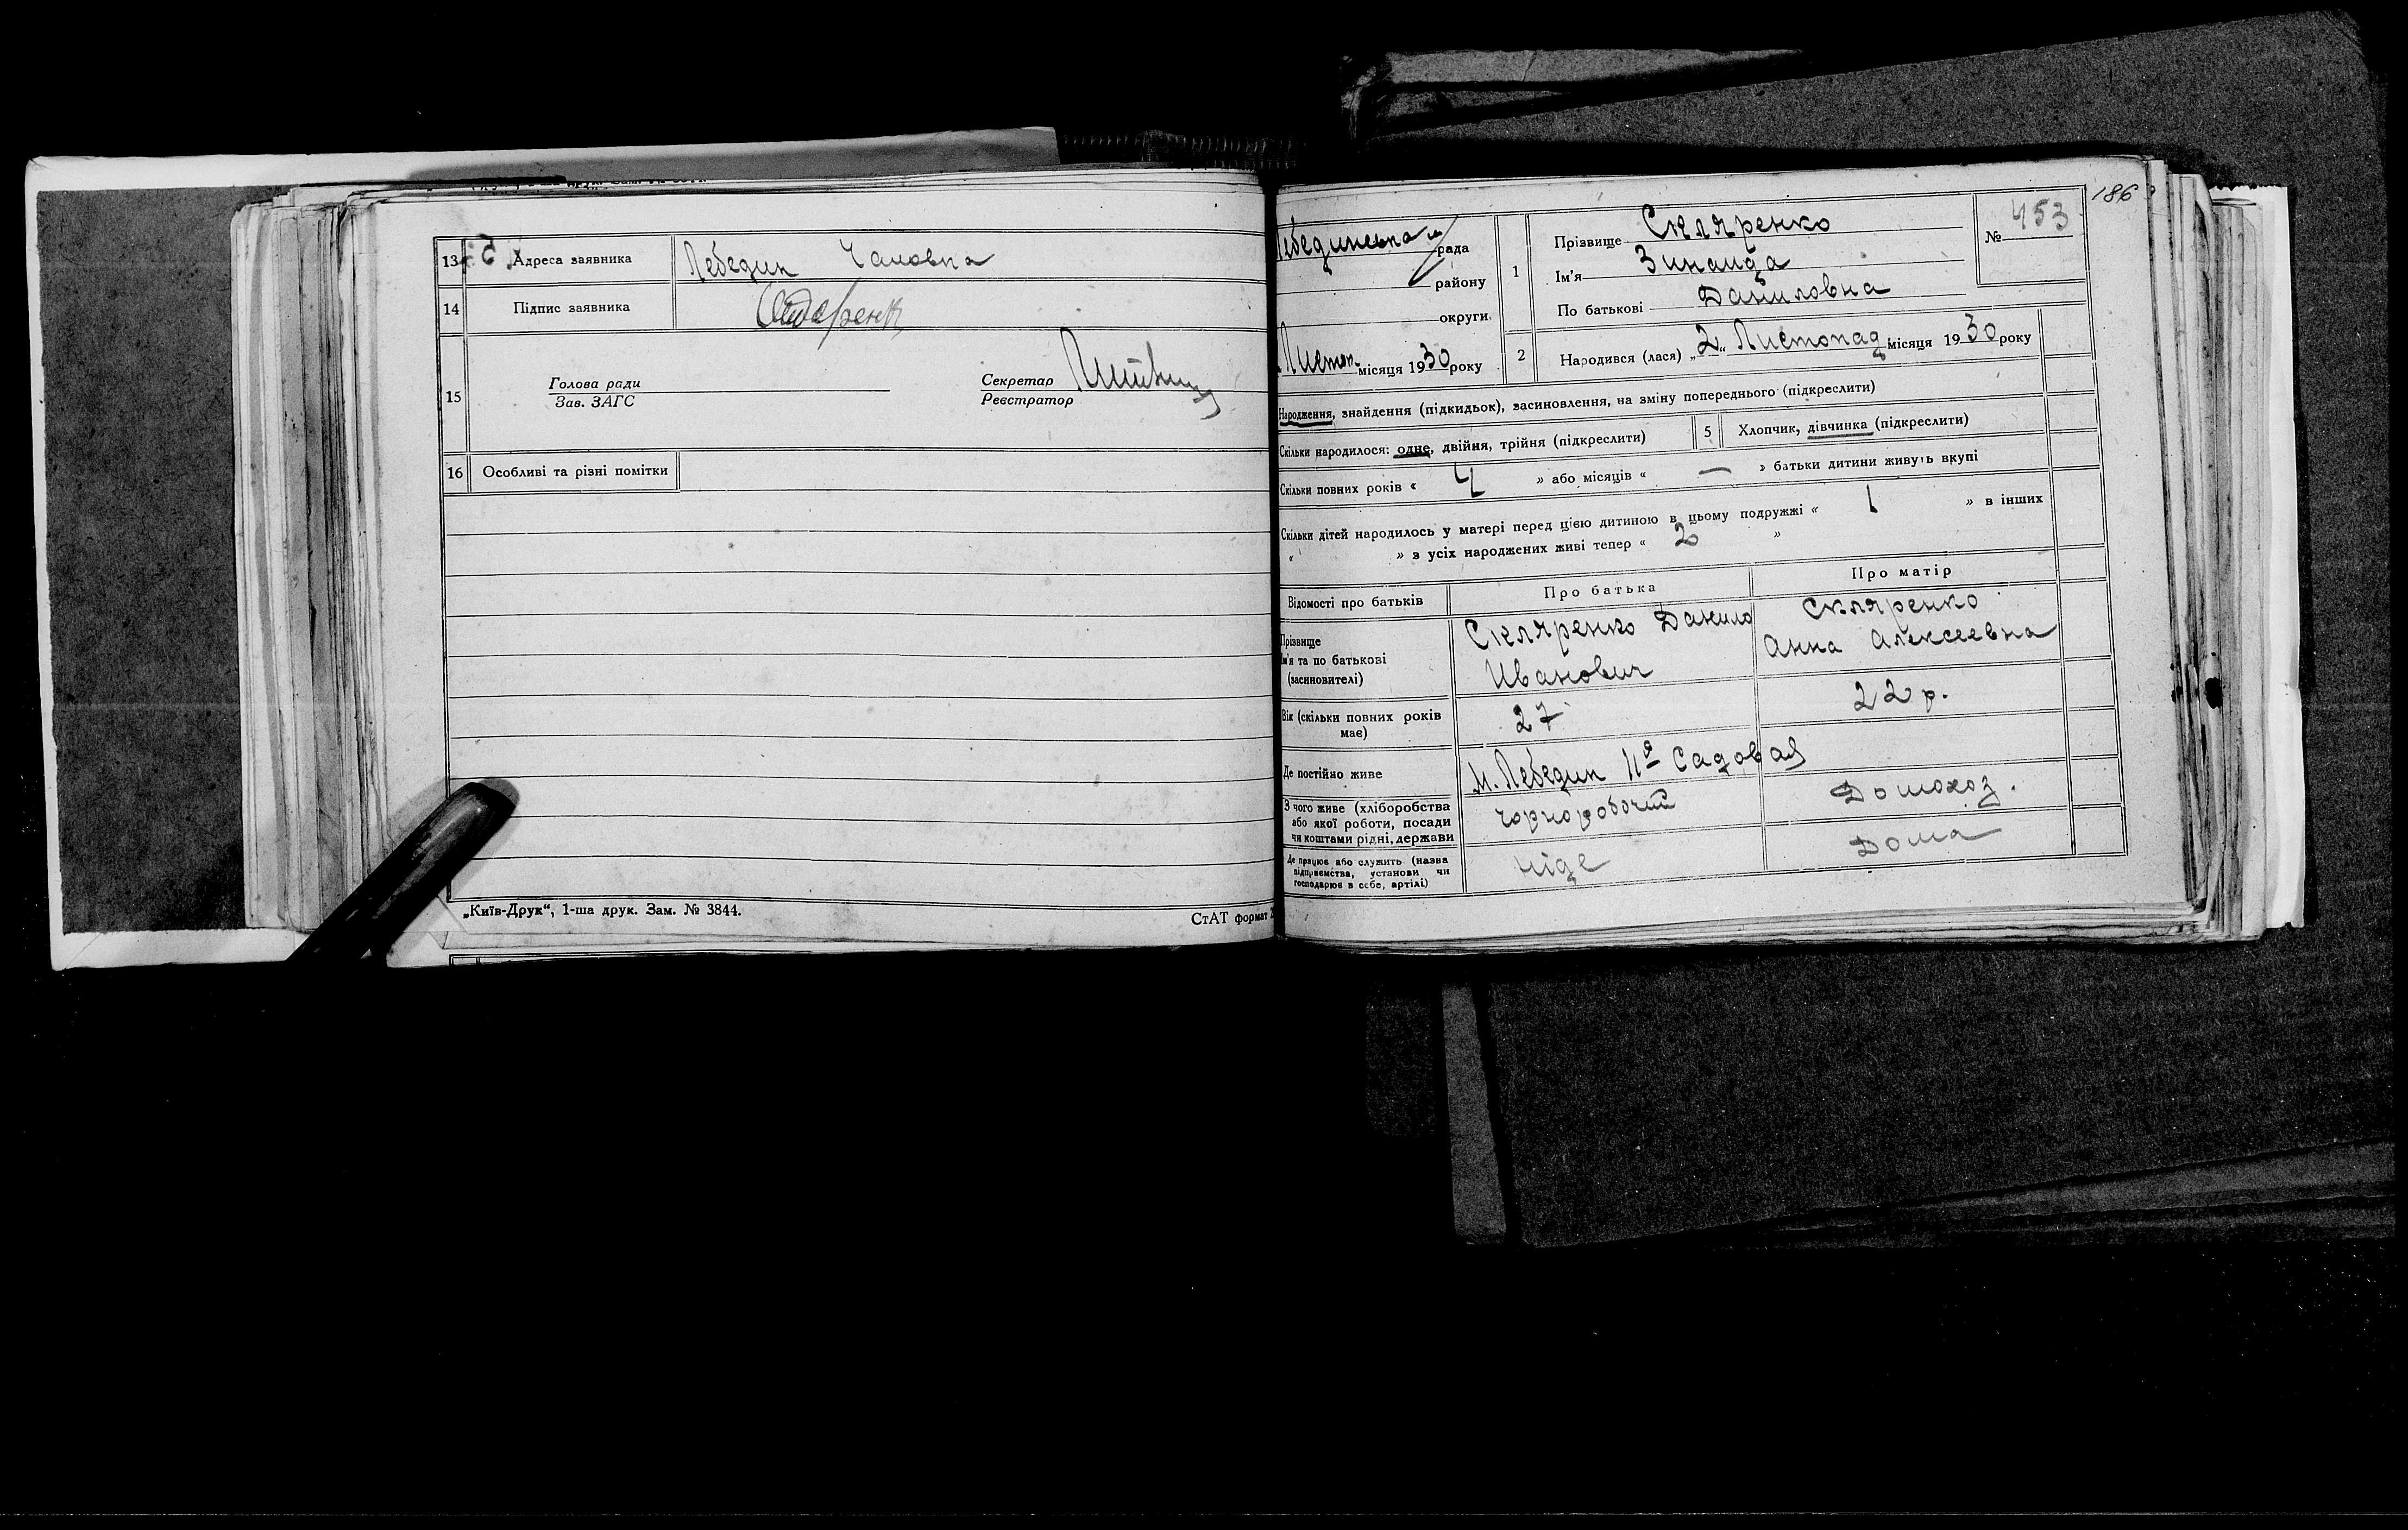 13 Адреса заявника Лебедин
14 Підпис заявника
15 Голова ради Секретар
Зав. ЗАГС Реєстратор
16 Особливі та різні помітки
„Київ-Друк“, 1-ша друк. Зам. № 3844.
СтАТ формат
186
Лебединська м рада
району
округи
Листоп. місяця 1930 року
1 Прізвище Скляренко
Ім'я Зинаида
По батькові Даниловна
№ 453
2 Народився (лася) „2“ Листопад місяця 1930 року
Народження, знайдення (підкидьок), засиновлення, на зміну попереднього (підкреслити)
Скільки народилося: одне, двійня, трійня (підкреслити) 5 Хлопчик, дівчинка (підкреслити)
Скільки повних років « 4 » або місяців « — » батьки дитини живуть вкупі
Скільки дітей народилось у матері перед цією дитиною в цьому подружжі « 1 » в інших
« » з усіх народжених живі тепер « 2 »
Відомості про батьків Про батька Про матір
Прізвище
Ім'я та по батькові
(засиновителі)
Скляренко Данило
Иванович
Скляренко
Анна Алексеевна
Вік (скільки повних років
має)
27 22 р.
Де постійно живе М. Лебедин Садовая
З чого живе (хліборобства
або якої роботи, посади
чи коштами рідні, держави
чорноробочий Домохоз.
Де працює або служить (назва
підприємства, установи чи
господарює в себе, артілі)
ніде Дома